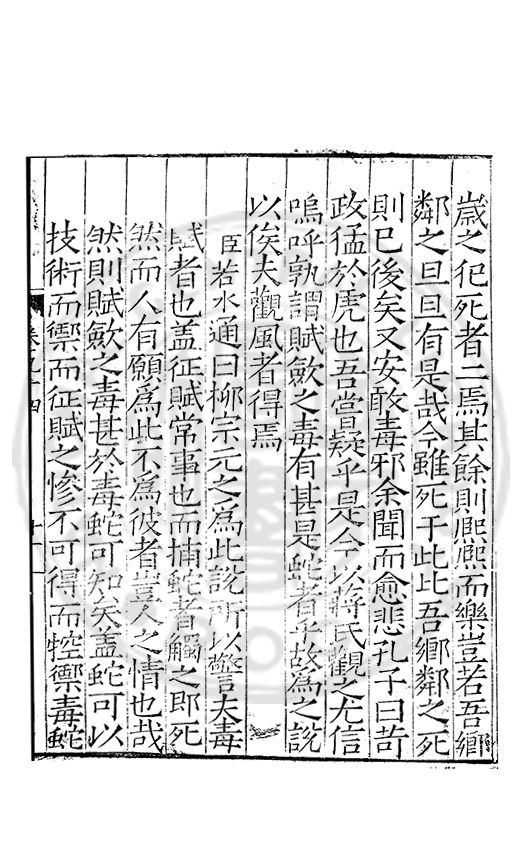 歲之犯死者二焉其餘則熈熈而樂豈若吾鄉
鄰之旦旦有是哉今雖死于此比吾鄉鄰之死
則已後矣又安敢毒邪余聞而愈悲孔子曰苛
政猛於虎也吾嘗疑乎是今以蔣氏觀之尤信
嗚呼孰謂賦斂之毒有甚是蛇者乎故為之說
以俟夫觀風者得焉
臣若水通曰柳宗元之為此說所以警夫毒
賦者也盖征賦常事也而捕蛇者觸之即死
然而人有願為此不為彼者豈人之情也哉
然則賦斂之毒甚於毒蛇可知矣盖蛇可以
技術而禦而征賦之慘不可得而控禦毒蛇
卷九十四